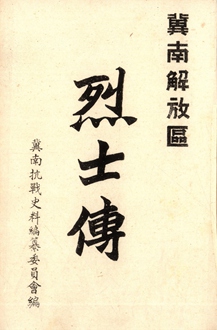 冀南解放區
烈士傳
冀南抗戰史料編纂委員會編